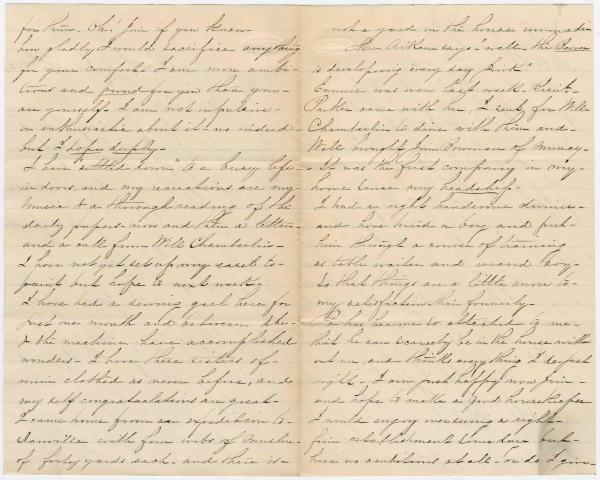 for him. Oh! Jim if you knew
how gladly I would sacrifice anything
for your comfort. I am more ambi-
tious and proud for you than you
are yourself. I am not impulsive
or enthusiastic about it - no indeed -
but I hope deeply.
I have "settled down" to a busy life
in doors, and my recreations are my
music & a through reading of the
daily papers - now and then a letter -
and a call from Will Chamberlin -
I have not yet set up my easel to
paint but hope to next week,
I have had a sewing girl here for
just one month and between she
& the machine, have accomplished
wonders - I have these sisters of
mine clothed as never before, and
my self congratulations are great -
I came home from an expedition to
Danville with four webs of muslin
of forty yards each - and there is
not a yard in the house
says - well - the
is developing every day
was over last week.
came with me, I sent for Will
Chamberlin to dine with them and
Will brought Jim Bowman of
It was the first company in my
home since my headship.
I had a right handsome dinner -
and have hired a boy and put
him through a course of training
as table waiter and errand boy -
So that things are a little more to
my satisfaction than formerly.
Pa has become so attached to me
that he can scarcely be in the house with
out me, and thinks everything I do just
right - I am just happy now Jim -
and hope to make a good housekeeper
I would enjoy overseeing a right
fine establishment some day but
have no ambitions at all - or do I give